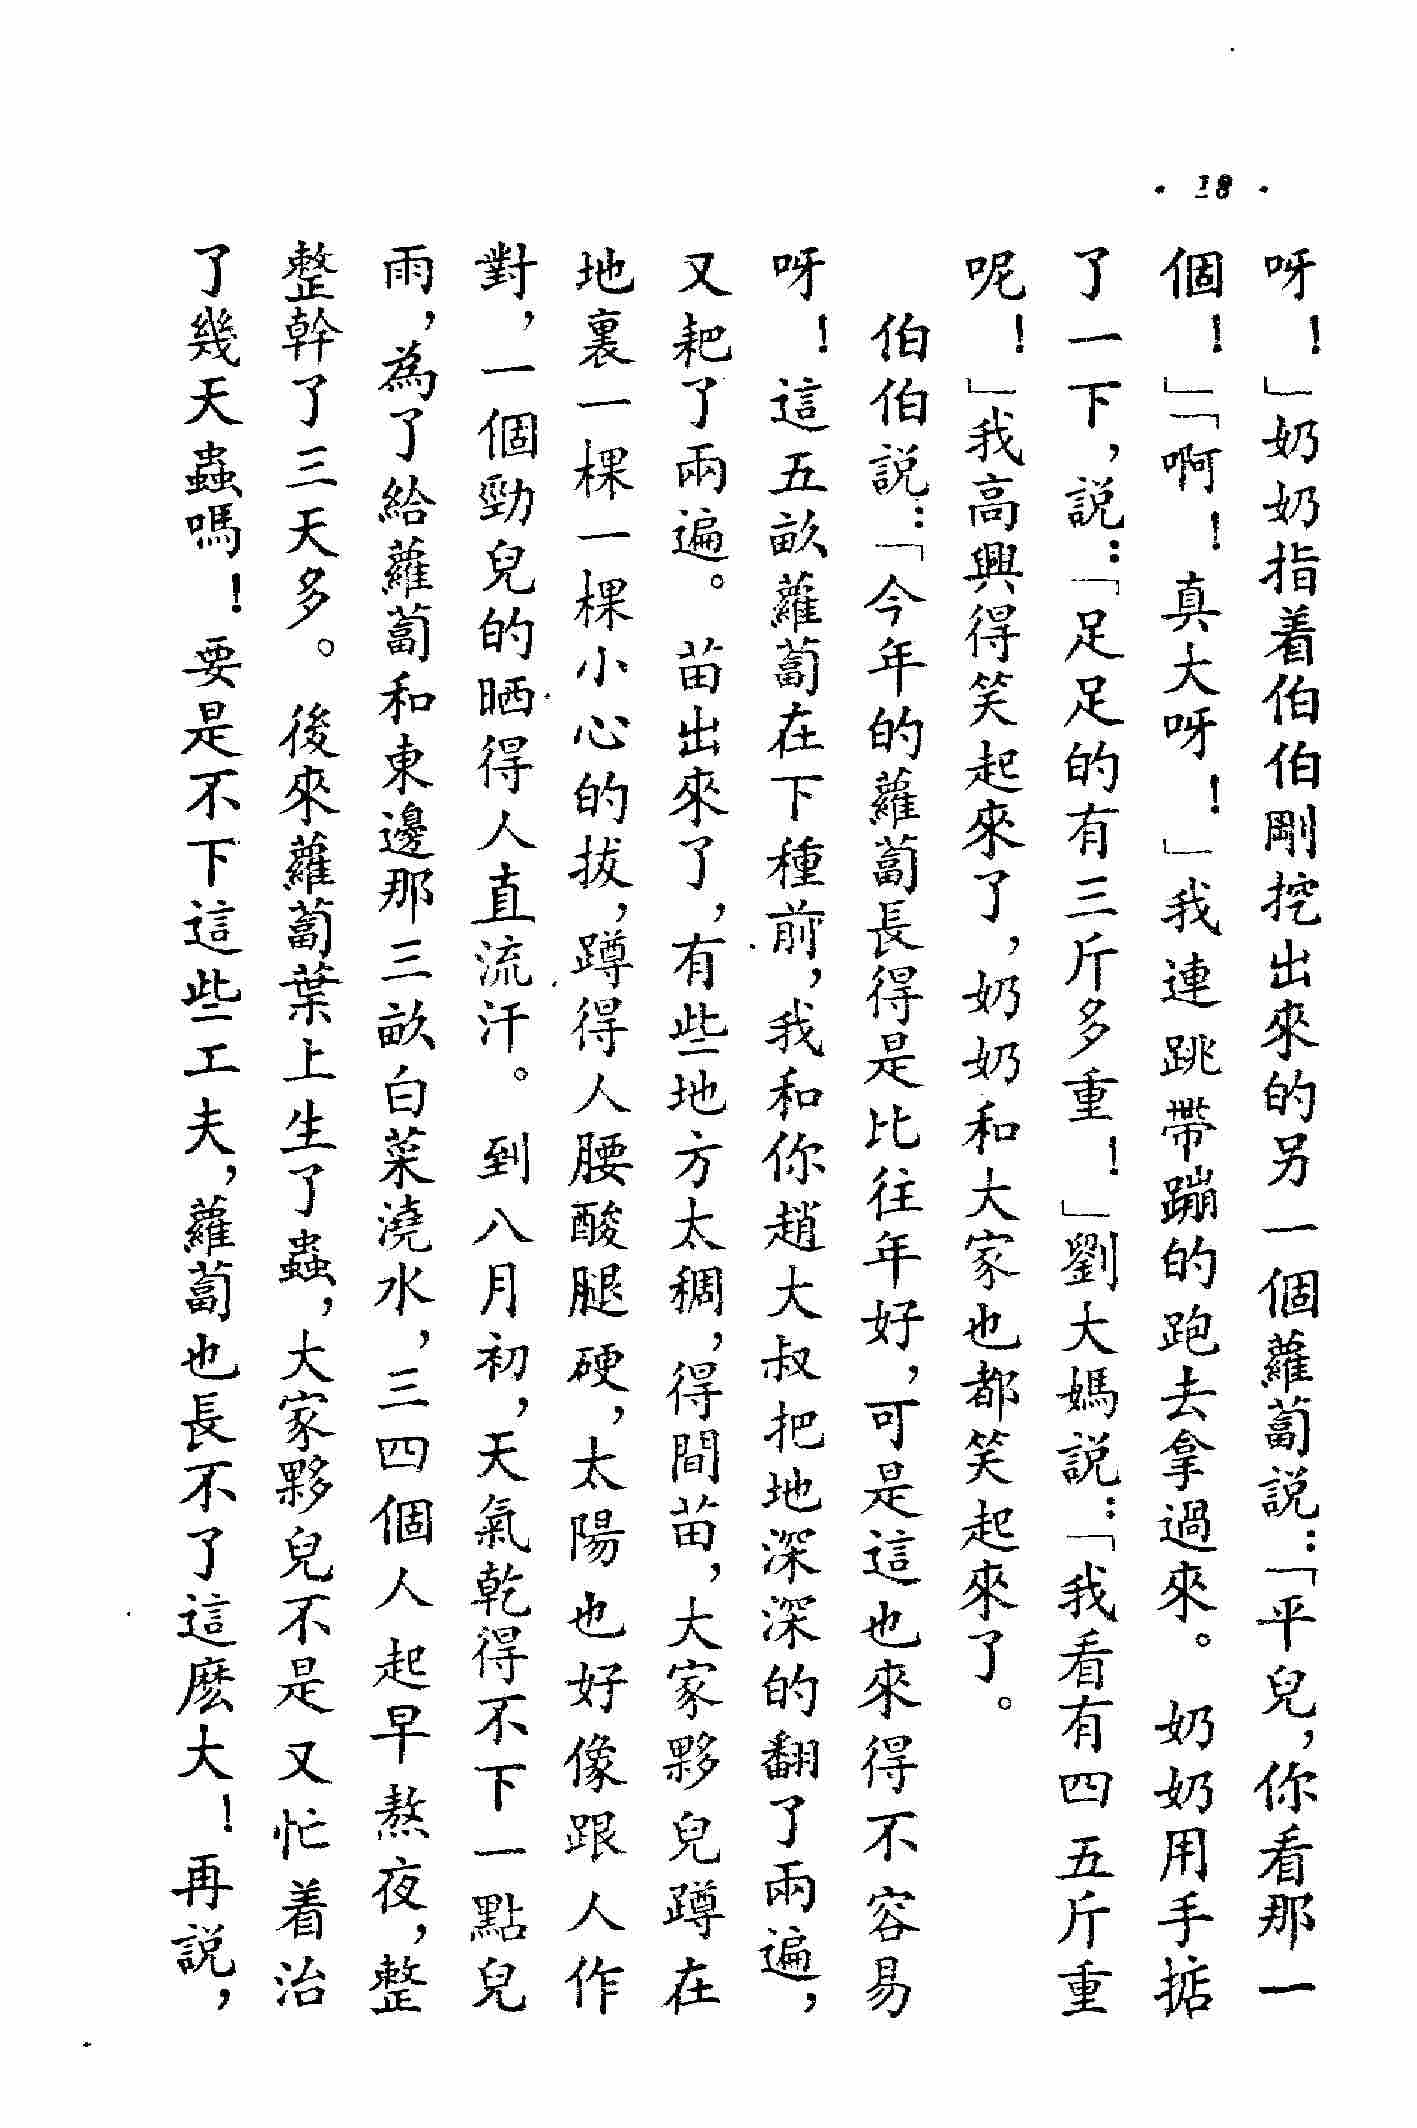 · 18 ·
呀！」奶奶指着伯伯剛挖出來的另一個蘿蔔說：「平兒，你看那一
個！」「啊！真大呀！」我連跳帶蹦的跑去拿過來。奶奶用手掂
了一下，説：「足足的有三斤多重！」劉大媽説：「我看有四五斤重
呢！」我高興得笑起來了，奶奶和大家也都笑起來了。
伯伯説：「今年的蘿蔔長得是比往年好，可是這也來得不容易
呀！這五畝蘿蔔在下種前，我和你趙大叔把地深深的翻了兩遍，
又耙了兩遍。苗出來了，有些地方太稠，得間苗，大家夥兒蹲在
地裏一棵一棵小心的拔，蹲得人腰酸腿硬，太陽也好像跟人作
對，一個勁兒的晒得人直流汗。到八月初，天氣乾得不下一點兒
雨，為了給蘿蔔和東邊那三畝白菜澆水，三四個人起早熬夜，整
整幹了三天多。後來蘿蔔葉上生了蟲，大家夥兒不是又忙着治
了幾天蟲嗎！要是不下這些工夫，蘿蔔也長不了這麽大！再説，